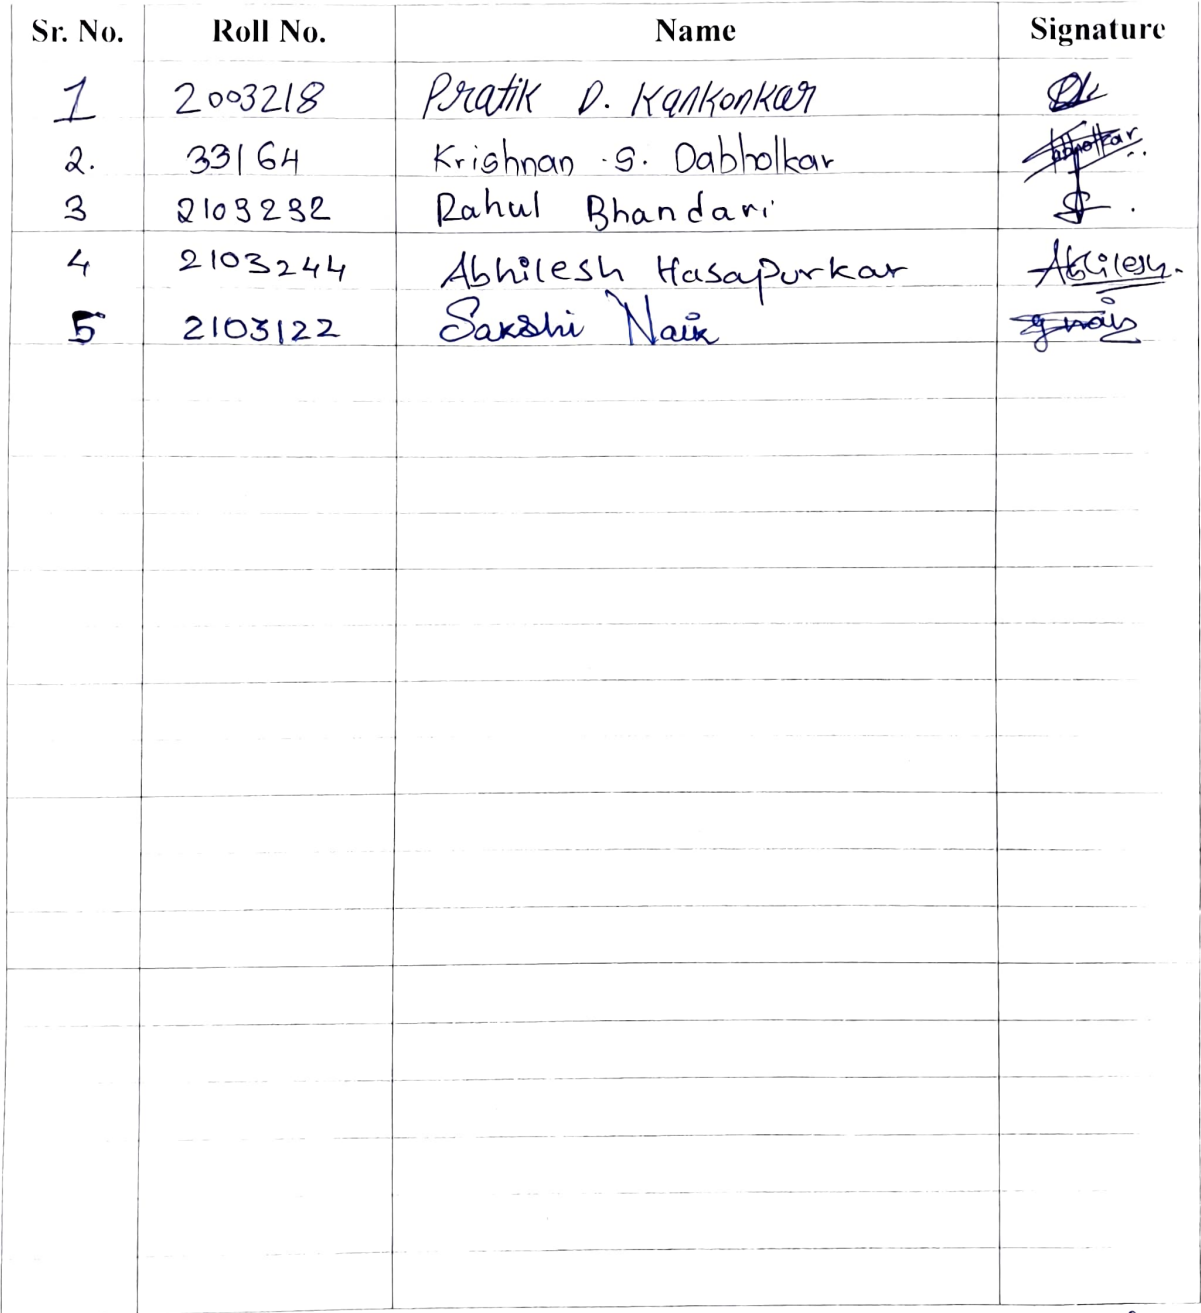 Sr. No. Roll No. Name Signature
1 2003218 Pratik D. Kankonkar
2. 33164 Krishnan .S. Dabholkar
3 2103232 Rahul Bhandari
4 2103244 Abhilesh Hasapurkar Abhilesh.
5 2103122 Sakshi Naik